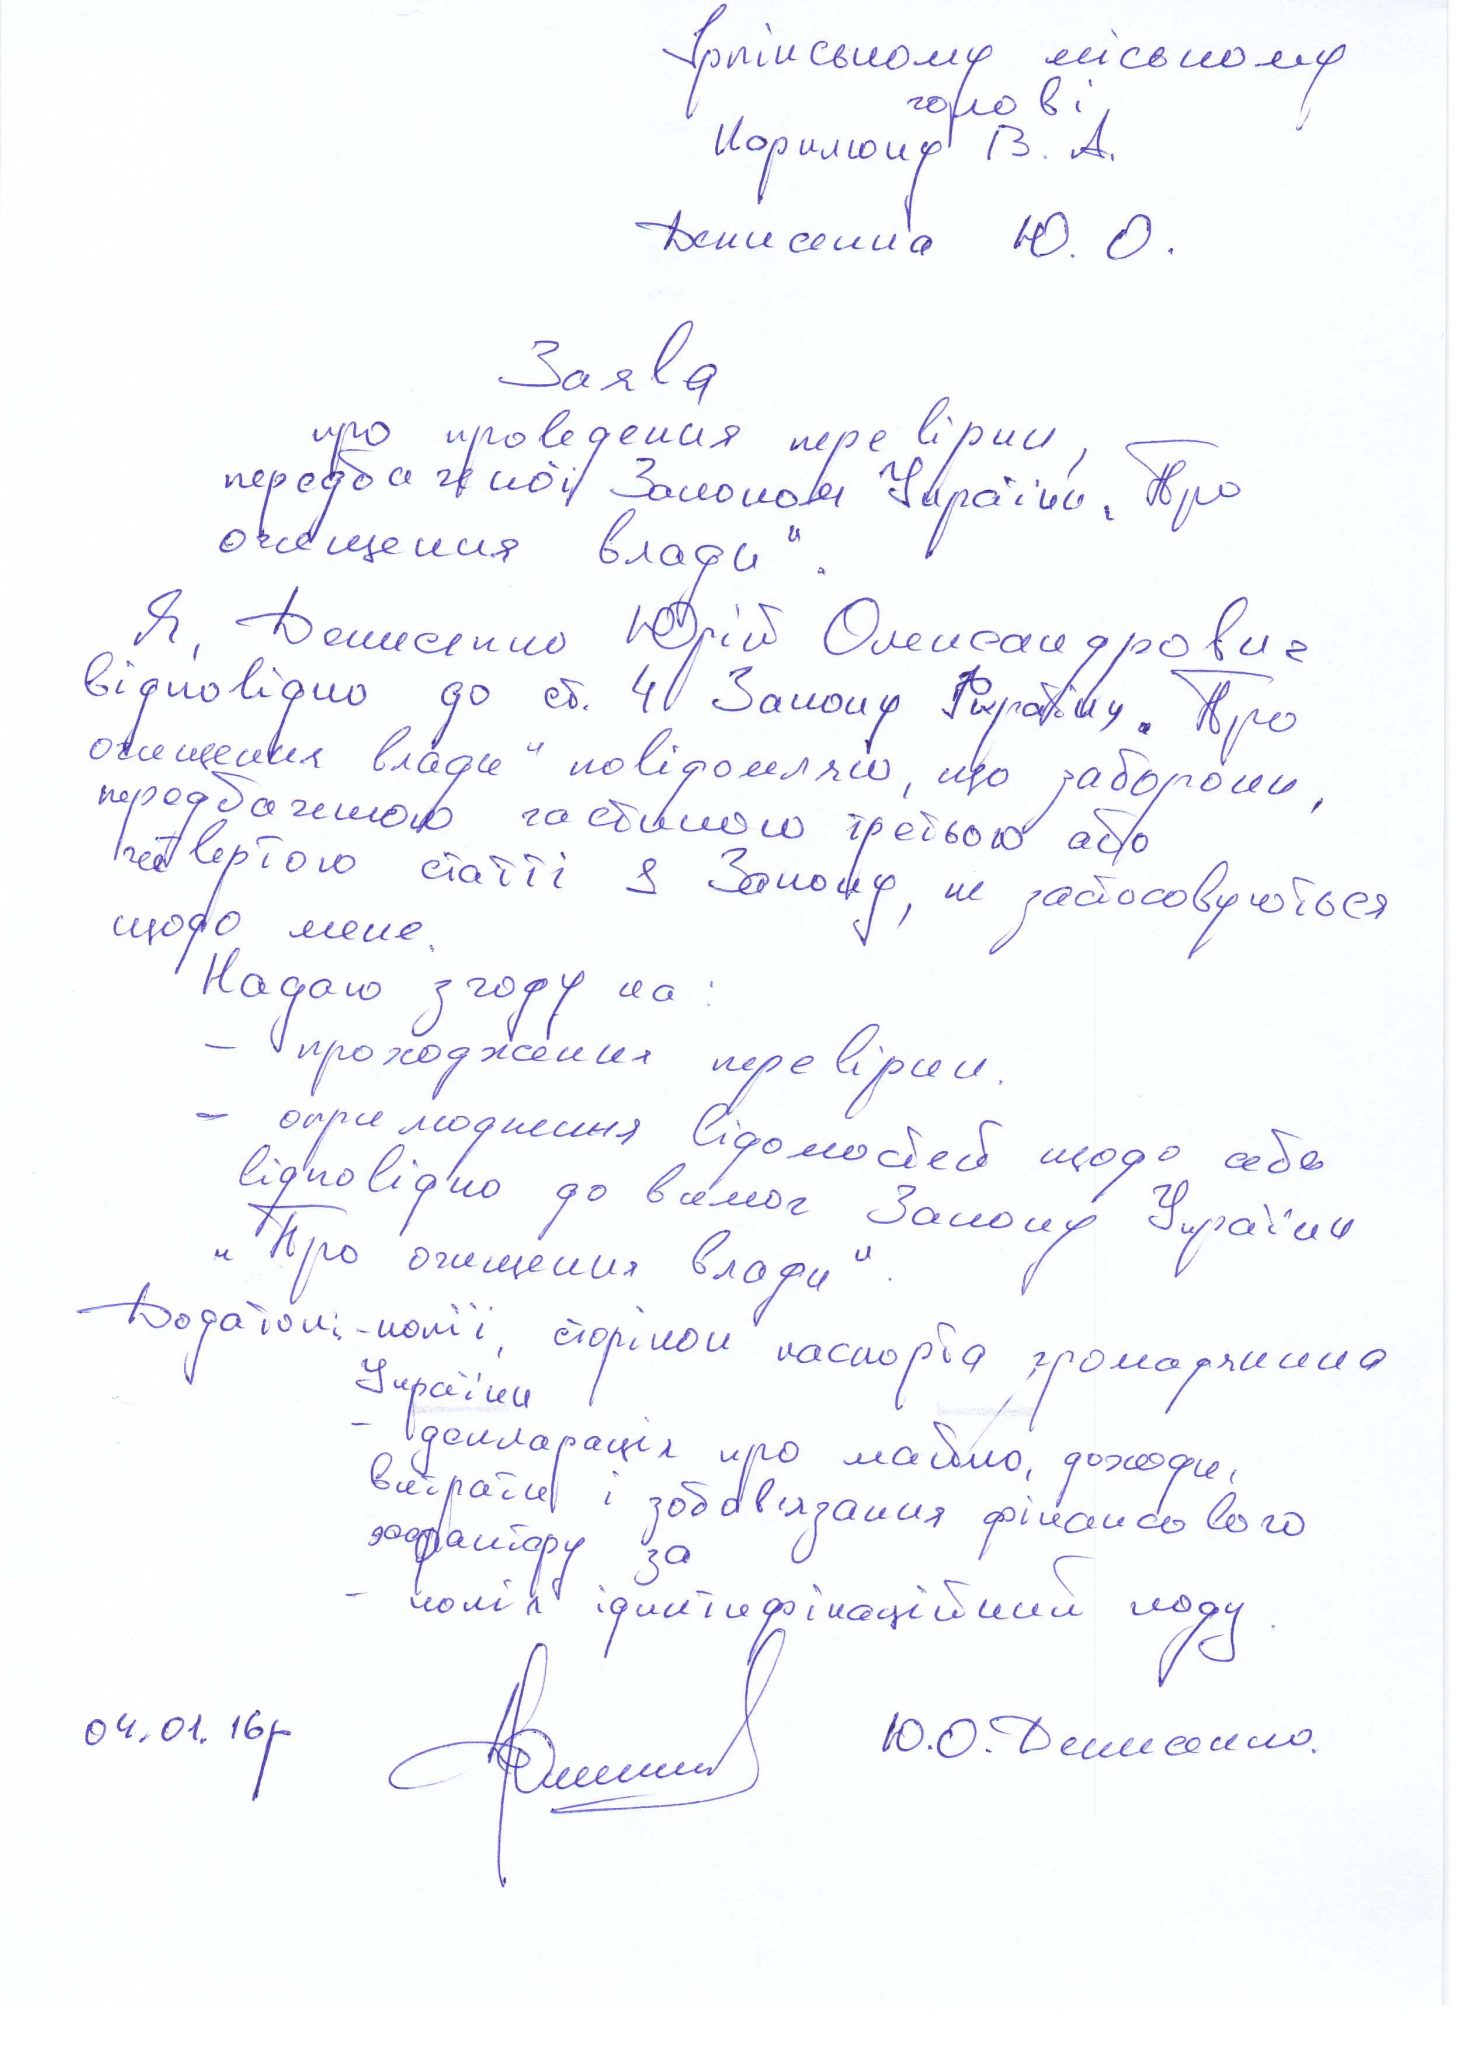 Ірпінському міському
голові
Карплюку В. А.
Денисенка Ю. О.
Заява
про проведення перевірки,
передбаченої Законом України „Про
очищення влади".
Я, Денисенко Юрій Олександрович
відповідно до ст. 4 Закону України „Про
очищення влади" повідомляю, що заборони,
передбаченою частиною третьою або
четвертою статті 1 Закону, не застосовуються
щодо мене.
Надаю згоду на:
- проходження перевірки.
- оприлюднення відомостей щодо себе
відповідно до вимог Закону України
„Про очищення влади".
Додатки: - копії, сторінок паспорта громадянина
України
- декларація про майно, доходи,
витрати і зобов'язання фінансового
характеру за
- копія ідентифікаційний коду.
04.01.16р
Ю.О. Денисенко.